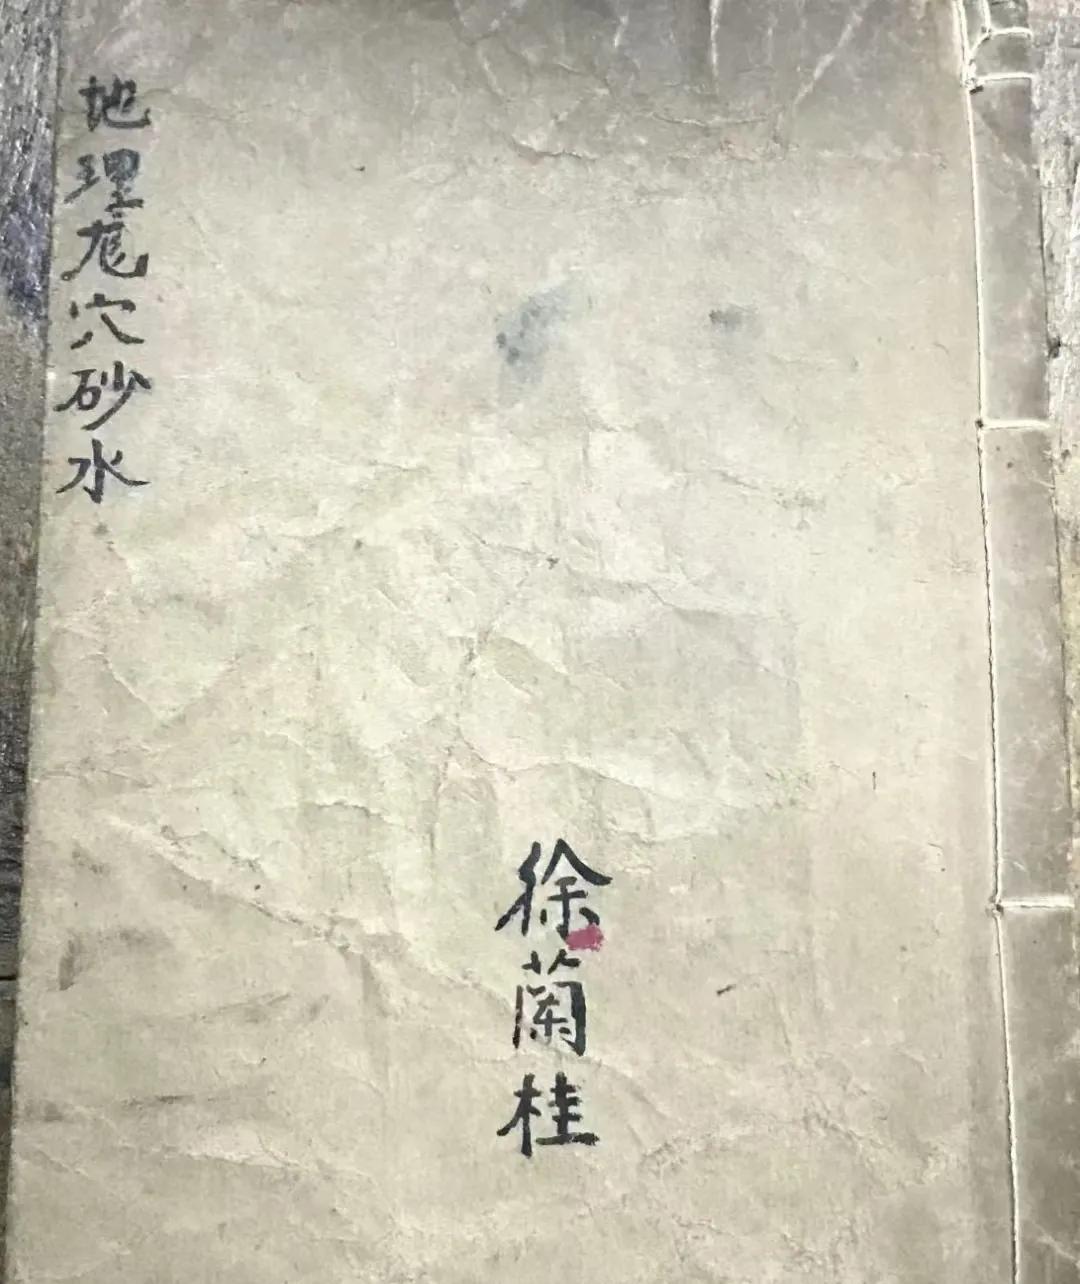 地理龍穴砂水
徐蘭桂